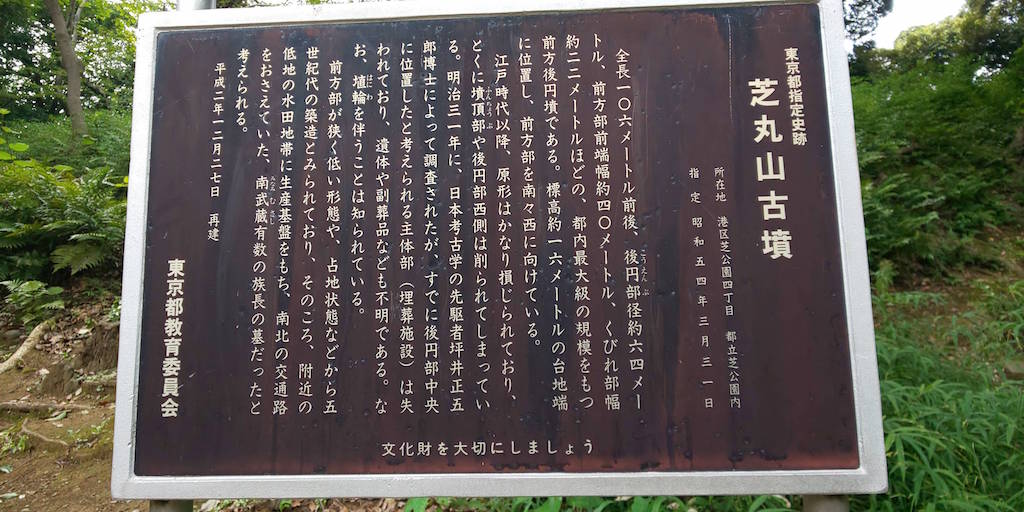 東京都指定史跡
芝丸山古墳
所在地 港区芝公園四丁目 都立芝公園内
指定 昭和五四年三月三一日
全長一〇六メートル前後、後円部径約六四メー
トル、前方部前端幅約四〇メートル、くびれ部幅
約二二メートルほどの、都内最大級の規模をもつ
前方後円墳である。標高約一六メートルの台地端
に位置し、前方部を南々西に向けている。
江戸時代以降、原形はかなり損じられており、
とくに墳頂部や後円部西側は削られてしまってい
る。明治三一年に、日本考古学の先駆者坪井正五
郎博士によって調査されたが、すでに後円部中央
に位置したと考えられる主体部(埋葬施設)は失
われており、遺体や副葬品なども不明である。な
お、埴輪を伴うことは知られている。
前方部が狭く低い形態や、占地状態などから五
世紀代の築造とみられており、そのころ、附近の
低地の水田地帯に生産基盤をもち、南北の交通路
をおさえていた、南武蔵有数の族長の墓だったと
考えられる。
平成二年一二月二七日 再建
東京都教育委員会
文化財を大切にしましょう